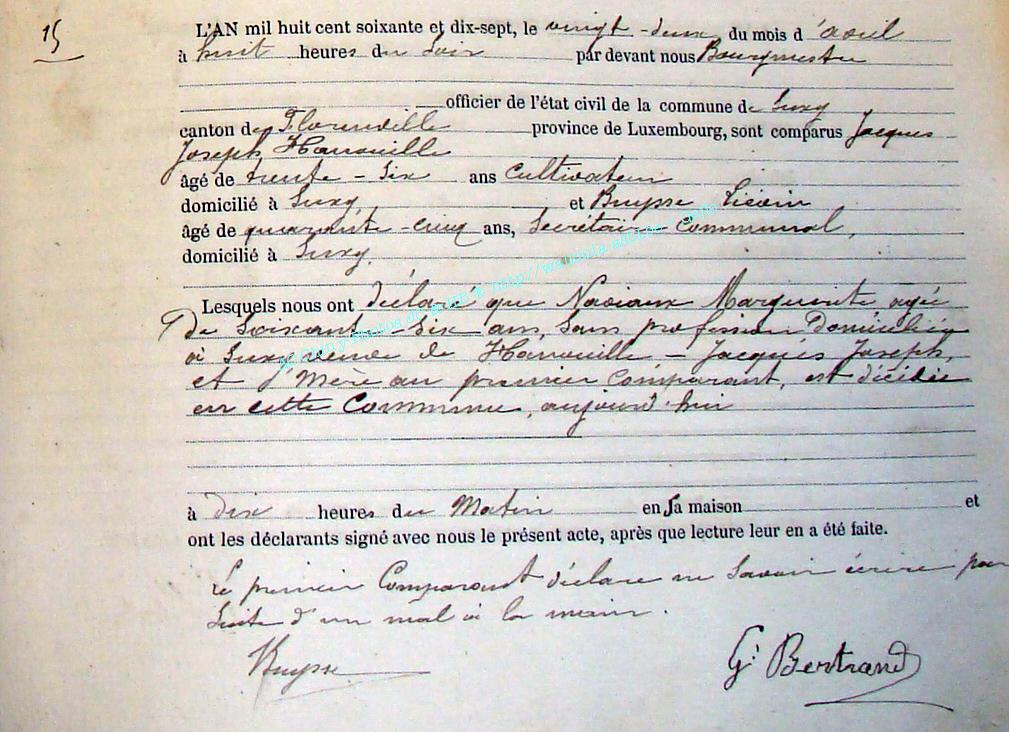 15
L'AN mil huit cent soixante et dix-sept, le vingt-deux du mois d'avril
à huit heures du soir par devant nous Bourgmestre
officier de l'état civil de la commune de Suxy
canton de Florenville province de Luxembourg, sont comparus Jacques
Joseph Hanouille
âgé de trente-six ans Cultivateur
domicilié à Suxy et Buysse Liévin
âgé de quarante-cinq ans, Secrétaire-Communal,
domicilié à Suxy.
Lesquels nous ont déclaré que Naviaux Marguerite agée
De Soixante-Six ans, Sans profession Domiciliée
à Suxy veuve de Hanouille-Jacques Joseph,
et Mère au premier Comparant, est décédée
en cette Commune, aujourd'hui
à dix heures du Matin en sa maison et
ont les déclarants signé avec nous le présent acte, après que lecture leur en a été faite.
Le premier Comparant déclare ne Savoir écrire par
Suite d'un mal à la main.
Buysse G. Bertrand